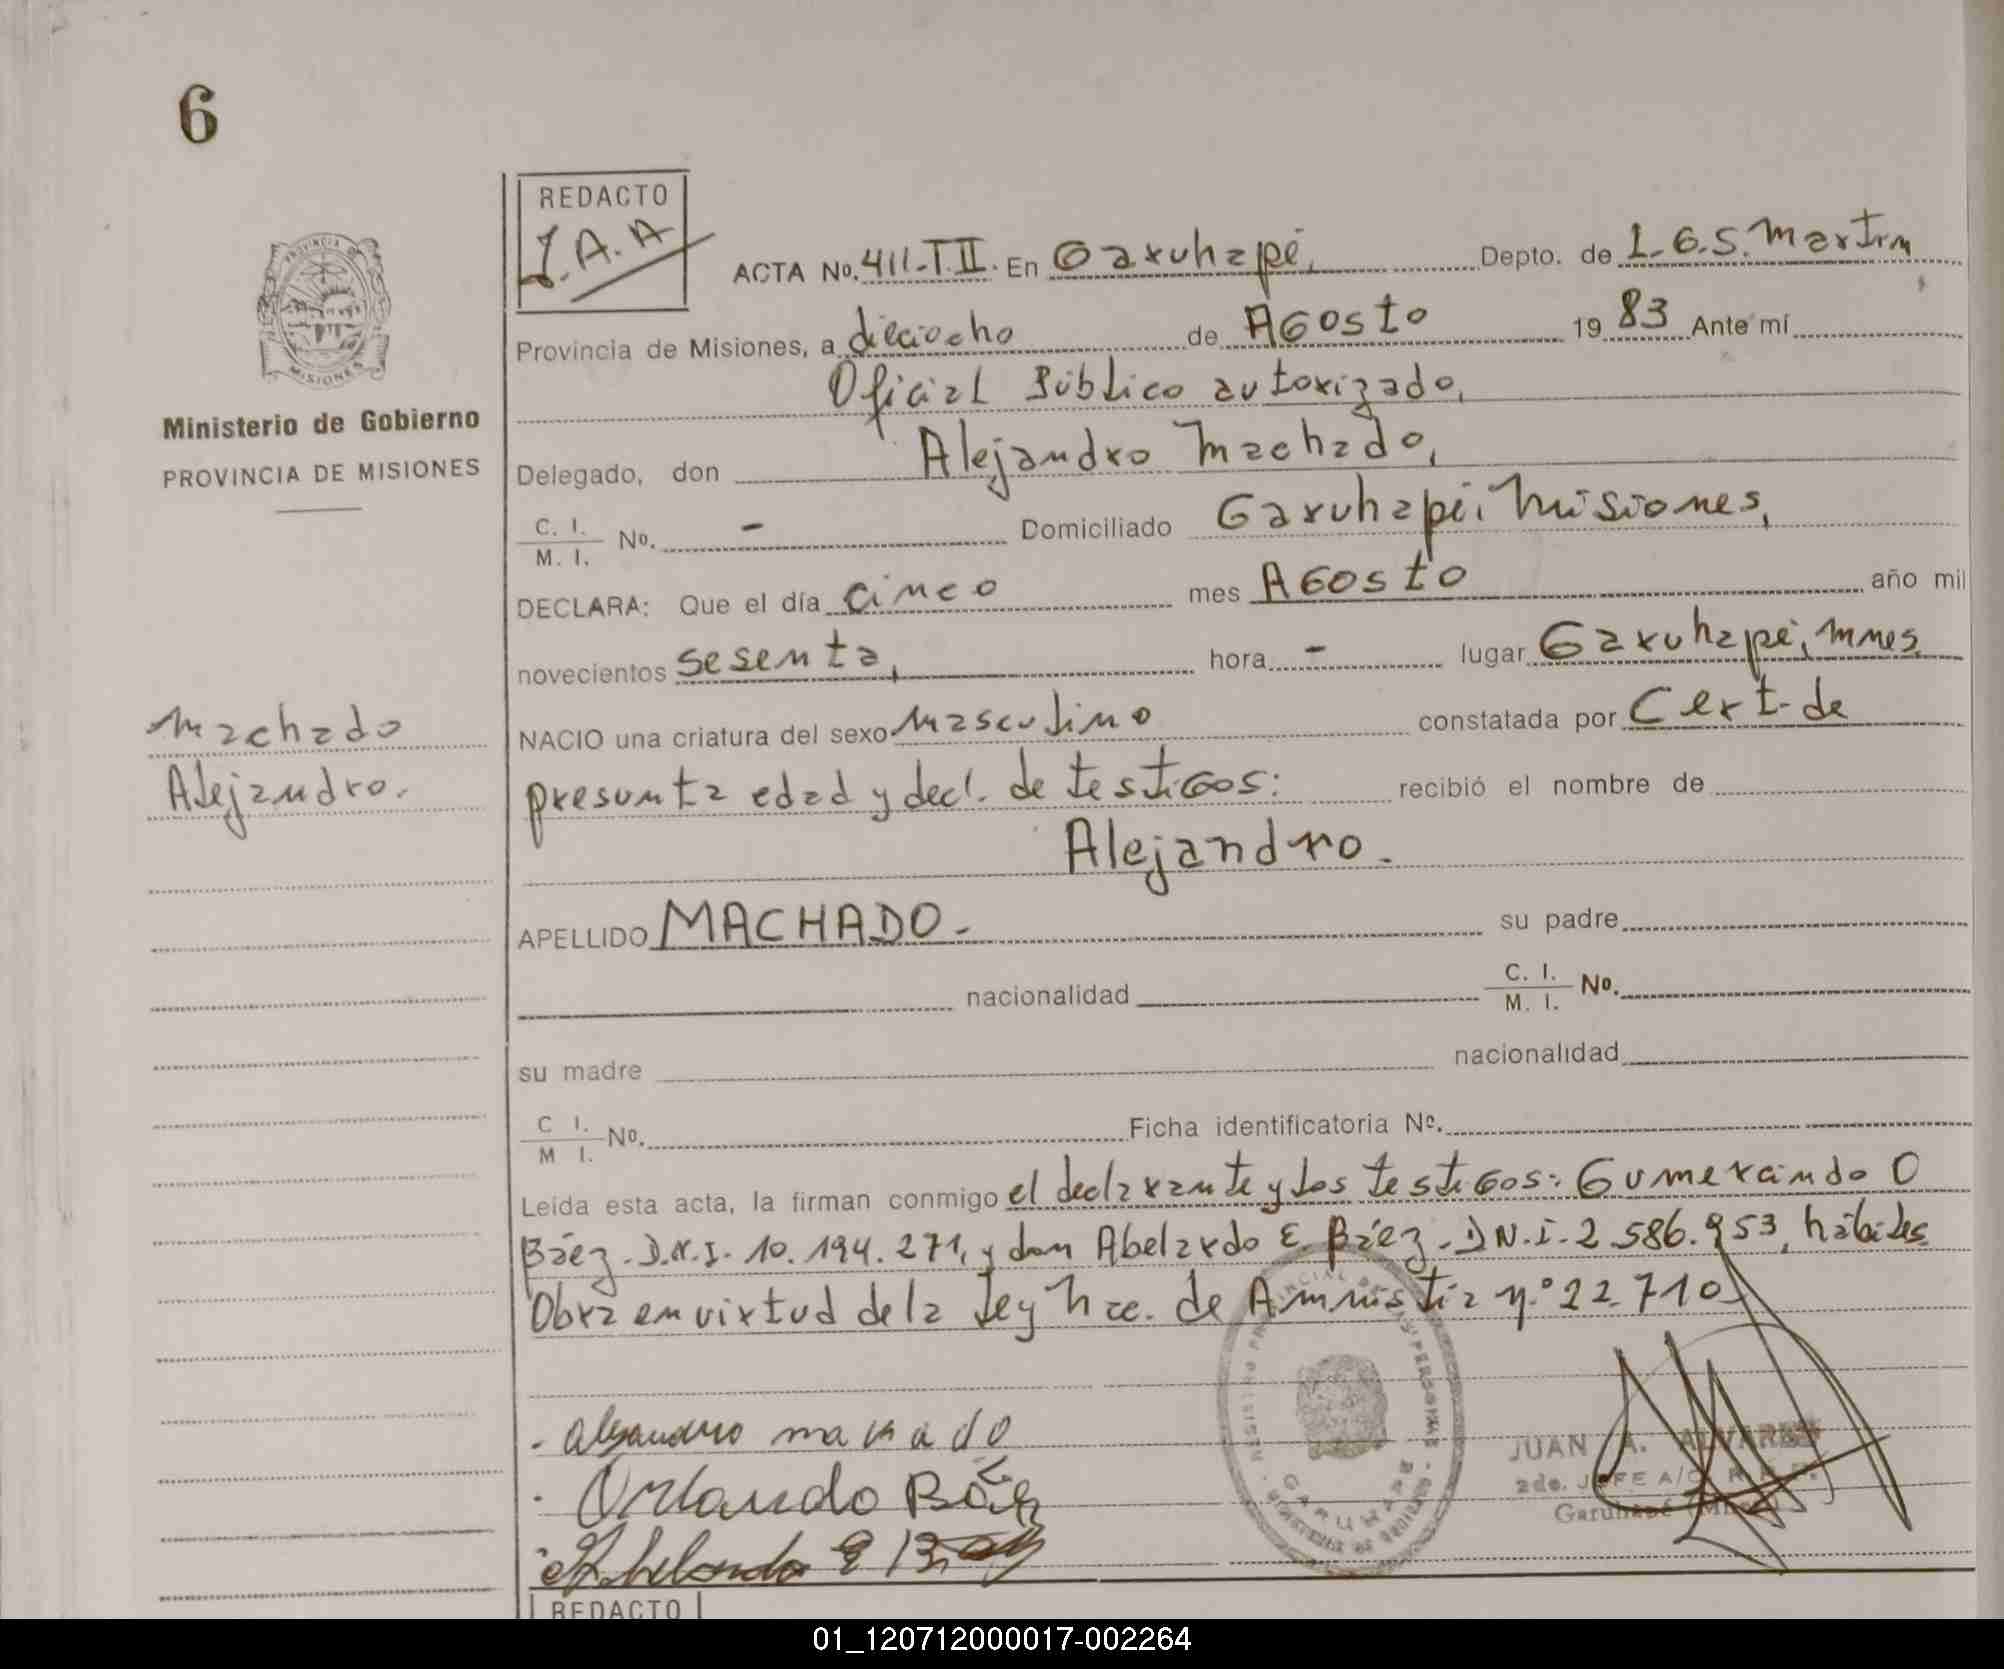 6
REDACTO
J.A.A
ACTA No. 411-T.II. En Garuhapé, Depto. de L.G.S. Martin
Provincia de Misiones, a dieciocho de Agosto 19 83 Ante mí
Oficial Público autorizado,
Delegado, don Alejandro Machado,
C. I. / M. I. No. - Domiciliado Garuhapé, Misiones,
DECLARA: Que el día cinco mes Agosto año mil
novecientos sesenta, hora - lugar Garuhapé, Mnes,
NACIO una criatura del sexo masculino constatada por Cert. de
presunta edad y decl. de testigos: recibió el nombre de
Alejandro.
APELLIDO MACHADO. su padre
nacionalidad C. I. / M. I. No.
su madre nacionalidad
C I. / M I. No. Ficha identificatoria No.
Leída esta acta, la firman conmigo el declarante y los testigos: Gumercindo O
Báez. D.N.I. 10.194.271, y don Abelardo E. Báez. D N.I. 2.586.953, hábiles
Obra en virtud de la Ley Nac. de Amnistia n.° 22.710
Ministerio de Gobierno
PROVINCIA DE MISIONES
PROVINCIA DE
MISIONES
Machado
Alejandro.
Alejandro machado
Orlando Báez
Abelardo E Báez
GARUHAPE
JUAN A. ALVAREZ
2do. JEFE A/C R.P.P.
Garuhapé (Mnes)
REDACTO
01_120712000017-002264